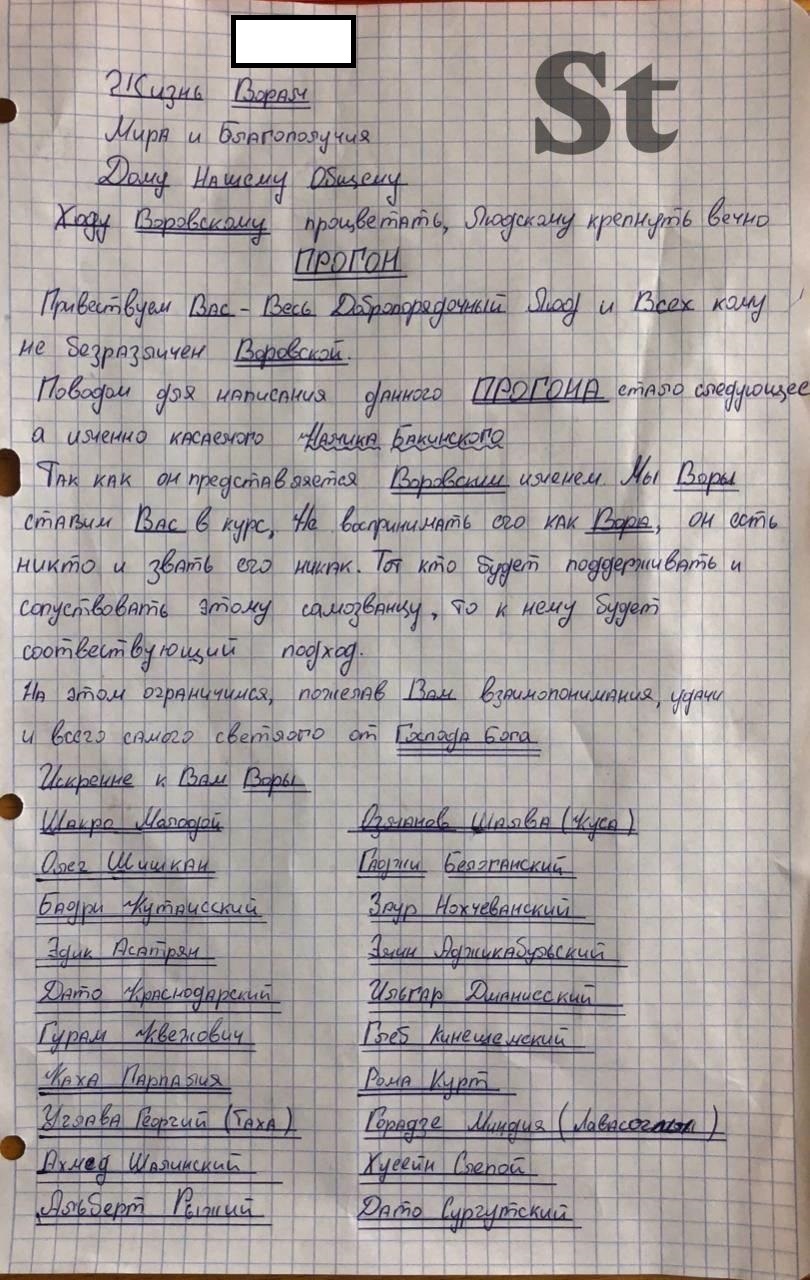 St
Жизнь Ворам
Мира и Благополучия
Дому Нашему Общему
Ходу Воровскому процветать, Людскому крепнуть вечно
ПРОГОН
Привествуем Вас - Весь Добропорядочный Люд и Всех кому
не безразличен Воровской.
Поводом для написания данного ПРОГОНА стало следующее
а именно касаемого Намика Бакинского
Так как он представляется Воровским именем. Мы Воры
ставим Вас в курс, Не воспринимать его как Вора, он есть
никто и звать его никак. Тот кто будет поддерживать и
сопуствовать этому самозванцу, то к нему будет
соотвествующий подход.
На этом ограничимся, пожелав Вам взаимопонимания, удачи
и всего самого светлого от Господа Бога
Искренне к Вам Воры
Шакро Молодой Озманов Шалва (Куса)
Олег Шишкан Гаджи Белганский
Бадри Кутаисский Заур Нохчеванский
Эдик Асатрян Эмин Аджикабульский
Дато Краснодарский Ильгар Дманисский
Гурам Квежович Глеб Кинешемский
Каха Парпалия Рома Курт
Углава Георгий (Таха) Горадзе Миндия ( )
Ахмед Шалинский Хусейн Слепой
Альберт Рыжий Дато Сургутский